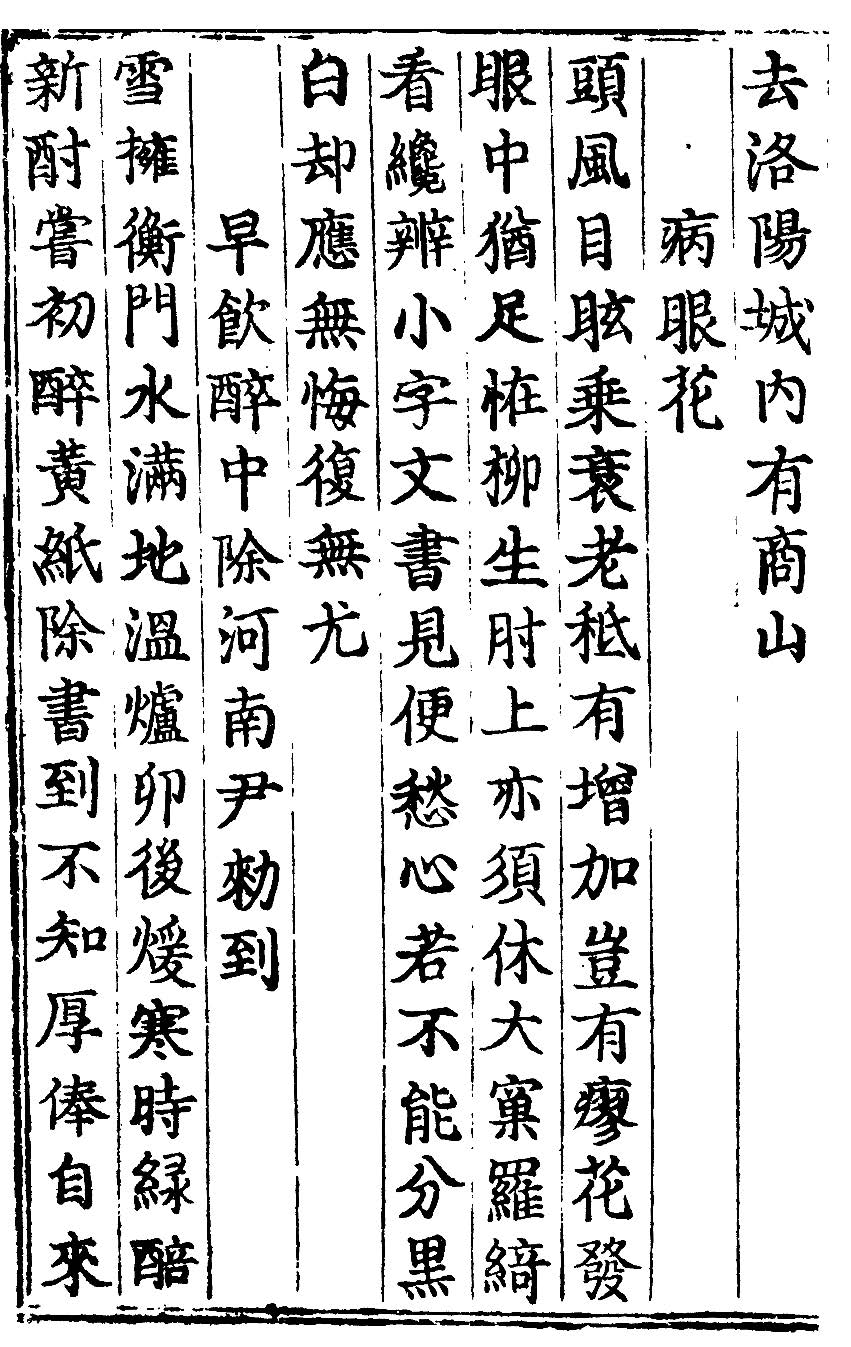 去洛陽城内有商山
病眼花
頭風目眩乗衰老秪有增加豈有瘳花發
眼中猶足恠柳生肘上亦須休大窠羅綺
看纔辨小字文書見便愁心若不能分黑
白却應無悔復無尤
早飲醉中除河南尹勑到
雪擁衡門水滿地溫爐卯後煖寒時緑醅
新酎嘗初醉黃紙除書到不知厚俸自來